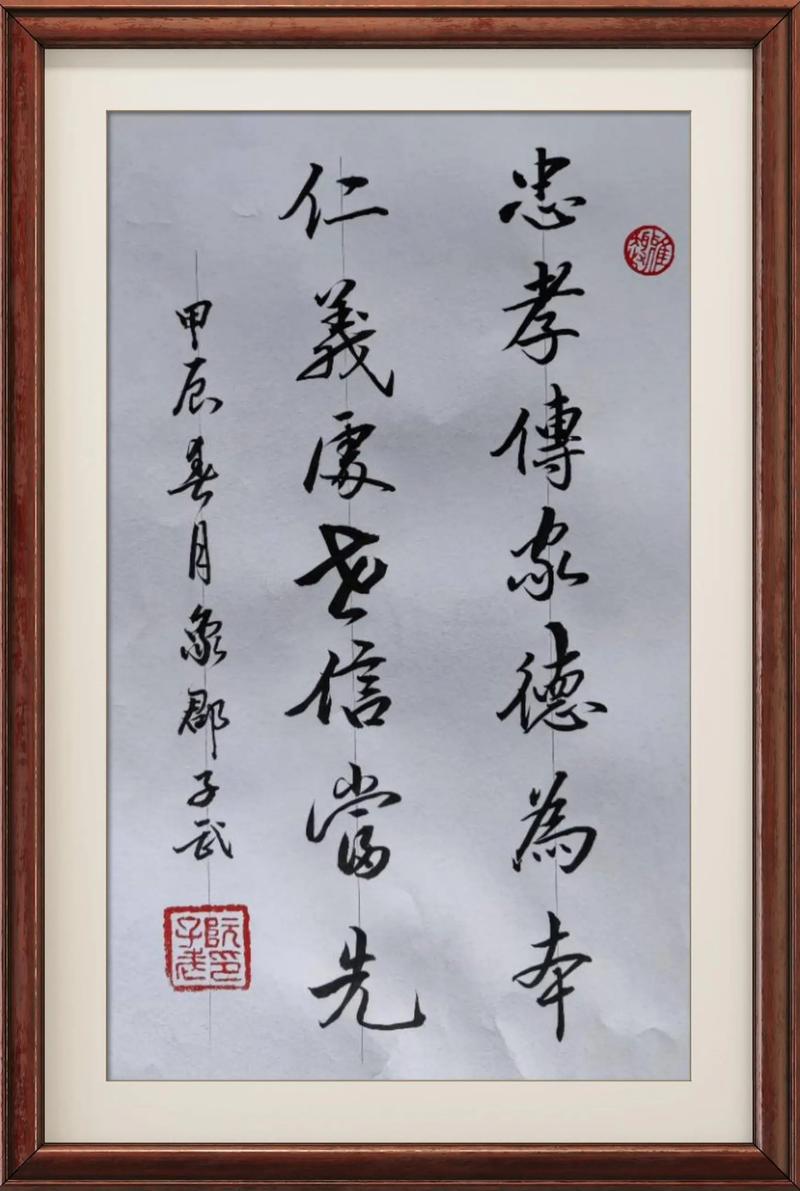 忠孝傳家德為本
仁義處世信當先
甲辰春月象郡子武
阮印子武